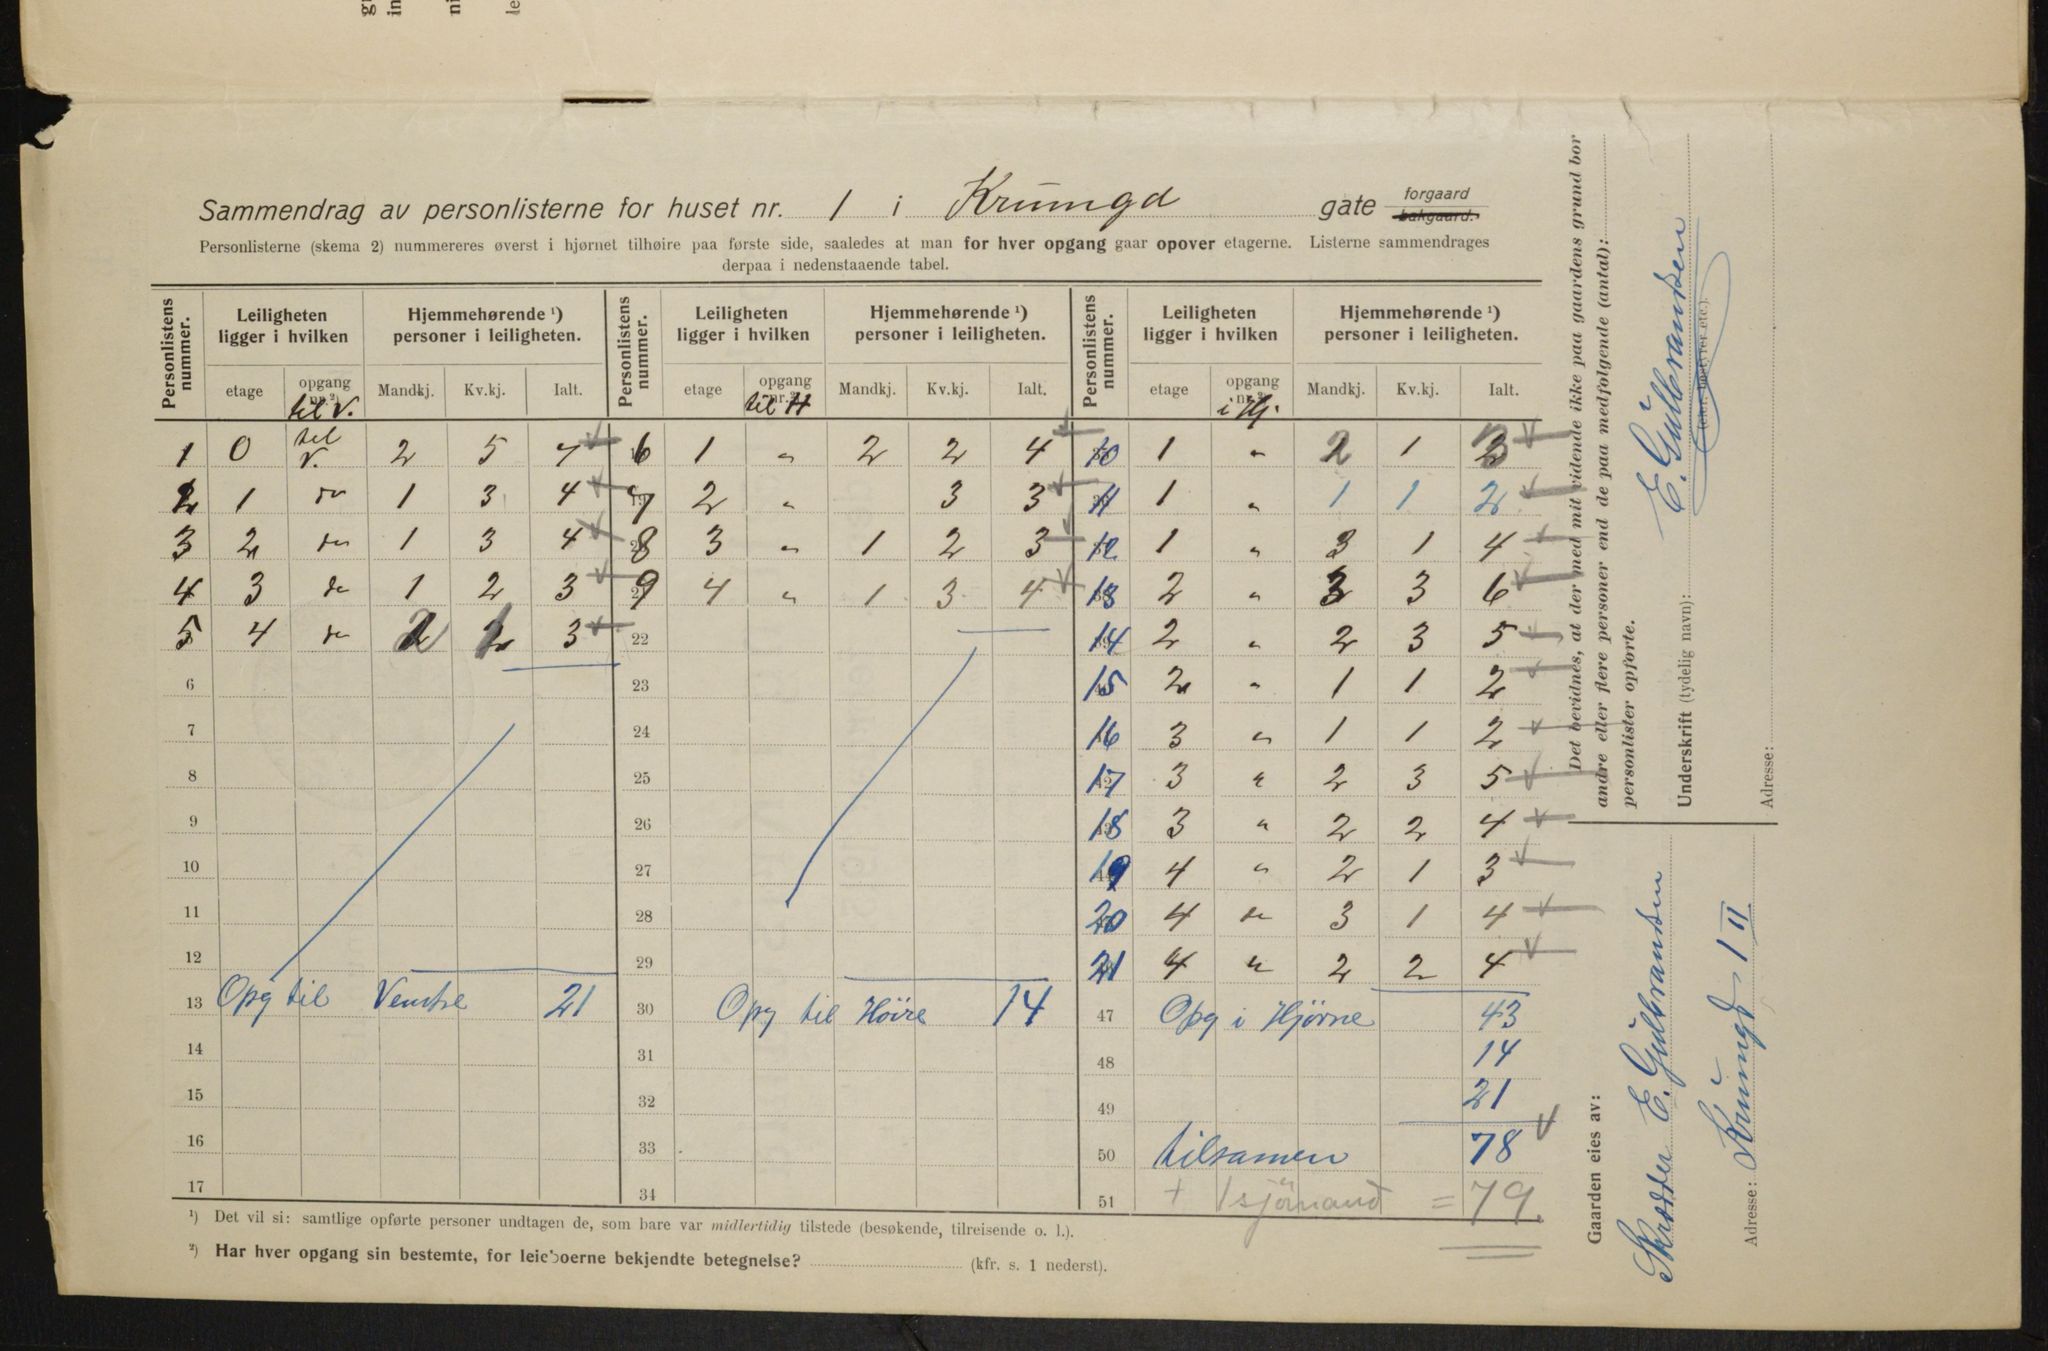 Sammendrag av personlisterne for huset nr. 1 i Krumgd gate forgaard bakgaard.
Personlisterne (skema 2) nummereres øverst i hjørnet tilhøire paa første side, saaledes at man for hver opgang gaar opover etagerne. Listerne sammendrages
derpaa i nedenstaaende tabel.
Personlistens nummer. Leiligheten ligger i hvilken Hjemmehørende ¹) personer i leiligheten. Personlistens nummer. Leiligheten ligger i hvilken Hjemmehørende ¹) personer i leiligheten. Personlistens nummer. Leiligheten ligger i hvilken Hjemmehørende ¹) personer i leiligheten.
etage opgang nr.²) Mandkj. Kv.kj. Ialt. etage opgang nr.²) Mandkj. Kv.kj. Ialt. etage opgang nr.²) Mandkj. Kv.kj. Ialt.
til V. til H i Hj.
1 0 til V. 2 5 7 6 1 " 2 2 4 10 1 " 2 1 3
2 1 do 1 3 4 7 2 " 3 3 11 1 " 1 1 2
3 2 do 1 3 4 8 3 " 1 2 3 12 1 " 3 1 4
4 3 do 1 2 3 9 4 " 1 3 4 13 2 " 3 3 6
5 4 do 2 1 3 22 14 2 " 2 3 5
6 23 15 2 " 1 1 2
7 24 16 3 " 1 1 2
8 25 17 3 " 2 3 5
9 26 18 3 " 2 2 4
10 27 19 4 " 2 1 3
11 28 20 4 do 3 1 4
12 29 21 4 " 2 2 4
13 Opg til Venstre 21 30 Opg til Höire 14 47 Opg i Hjörne 43
14 31 48 14
15 32 49 21
16 33 50 tilsamen 78
17 34 51 + 1 sjömand = 79.
¹) Det vil si: samtlige opførte personer undtagen de, som bare var midlertidig tilstede (besøkende, tilreisende o. l.).
²) Har hver opgang sin bestemte, for leieboerne bekjendte betegnelse? (kfr. s. 1 nederst).
Det bevidnes, at der med mit vidende ikke paa gaardens grund bor
andre eller flere personer end de paa medfølgende (antal):
personlister opførte.
Underskrift (tydelig navn): E. Gulbrandsen
(eier, bestyrer etc.)
Adresse:
Gaarden eies av:
Skrædder E. Gulbrandsen
Adresse: Krumgd 1 II